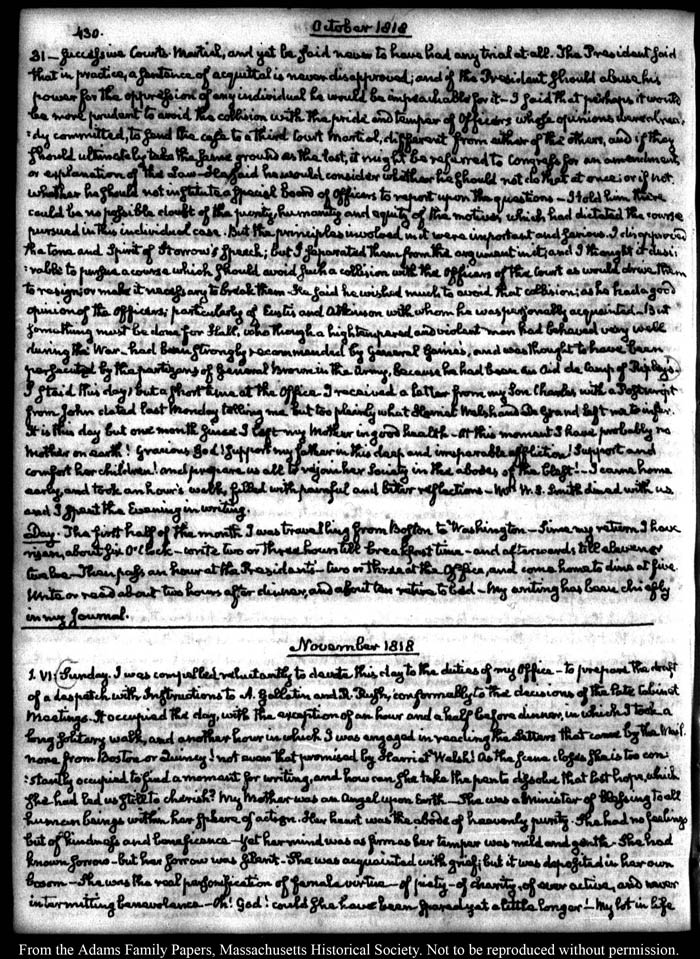 430.
October 1818
31 — successive Courts Martial, and yet be said never to have had any trial at all. The President said
that in practice, a sentence of acquittal is never disapproved; and if the President should abuse his
power for the oppression of any individual he would be impeachable for it — I said that perhaps it would
be more prudent to avoid the collision with the pride and temper of Officers whose opinions were alrea-
:dy committed, to send the case to a third Court Martial, different from either of the others, and if they
should ultimately take the same ground as the last, it might be referred to Congress for an amendment,
or explanation of the Law — He said he would consider whether he should not do that at once; or if not
whether he should not institute a special board of Officers to report upon the questions — I told him there
could be no possible doubt of the purity, humanity and equity of the motives, which had dictated the course
pursued in this individual case. But the principles involved in it were important and serious. I disapproved
the tone and Spirit of Storrow's Speech; but I separated them from the argument in it; and I thought it desi:
:rable to pursue a course which should avoid such a collision with the Officers of the Court as would drive them
to resign, or make it necessary to break them — He said he wished much to avoid that collision; as he had a good
opinion of the Officers; particularly of Eustis and Atkinson with whom he was personally acquainted — But
something must be done for Hall, who though a high tempered and violent man had behaved very well
during the War — had been strongly recommended by General Gaines, and was thought to have been
persecuted by the partizans of General Brown in the Army, because he had been an Aid de Camp of Ripley's —
I staid this day but a short time at the Office. I received a letter from my Son Charles with a Postscript
from John dated last Monday telling me but too plainly what Harriet Welsh and De Grand left me to infer.
It is this day but one month since I left my Mother in good health — At this moment I have probably no
Mother on earth! Gracious God! Support my father in this deep and irreparable affliction! Support and
comfort her children! and prepare us all to rejoin her Society in the abodes of the blest! — I came home
early, and took an hour's walk, filled with painful and bitter reflections — Mrs W. S. Smith dined with us
and I spent the Evening in writing.
Day. The first half of the month I was travelling from Boston to Washington — Since my return I have
risen, about six O'Clock — write two or three hours till breakfast time — and afterwards till eleven or
twelve — Then pass an hour at the President's — two or three at the Office, and come home to dine at five.
Write or read about two hours after dinner, and about ten retire to bed — My writing has been chiefly
in my Journal.
November 1818
1. VI: Sunday. I was compelled reluctantly to devote this day to the duties of my Office — to prepare the draft
of a despatch with Instructions to A. Gallatin and R. Rush, conformably to the decisions of the late Cabinet
Meetings. It occupied the day, with the exception of an hour and a half before dinner, in which I took a
long solitary walk, and another hour in which I was engaged in reading the Letters that came by the Mail.
none from Boston or Quincy: not even that promised by Harriet Welsh! As the Scene closes She is too con:
:stantly occupied to find a moment for writing, and how can she take the pen to dissolve that last hope, which
she had led us still to cherish? My Mother was an Angel upon Earth — She was a Minister of Blessing to all
human beings within her sphere of action. Her heart was the abode of heavenly purity — She had no feelings
but of kindness and beneficence — Yet her mind was as firm as her temper was mild and gentle. She had
known sorrow — but her sorrow was silent — She was acquainted with grief; but it was deposited in her own
bosom — She was the real personification of female virtue — of piety — of charity, of ever active, and never
intermitting benevolence — Oh! God! could she have been spared yet a little longer! — My lot in life
From the Adams Family Papers, Massachusetts Historical Society. Not to be reproduced without permission.